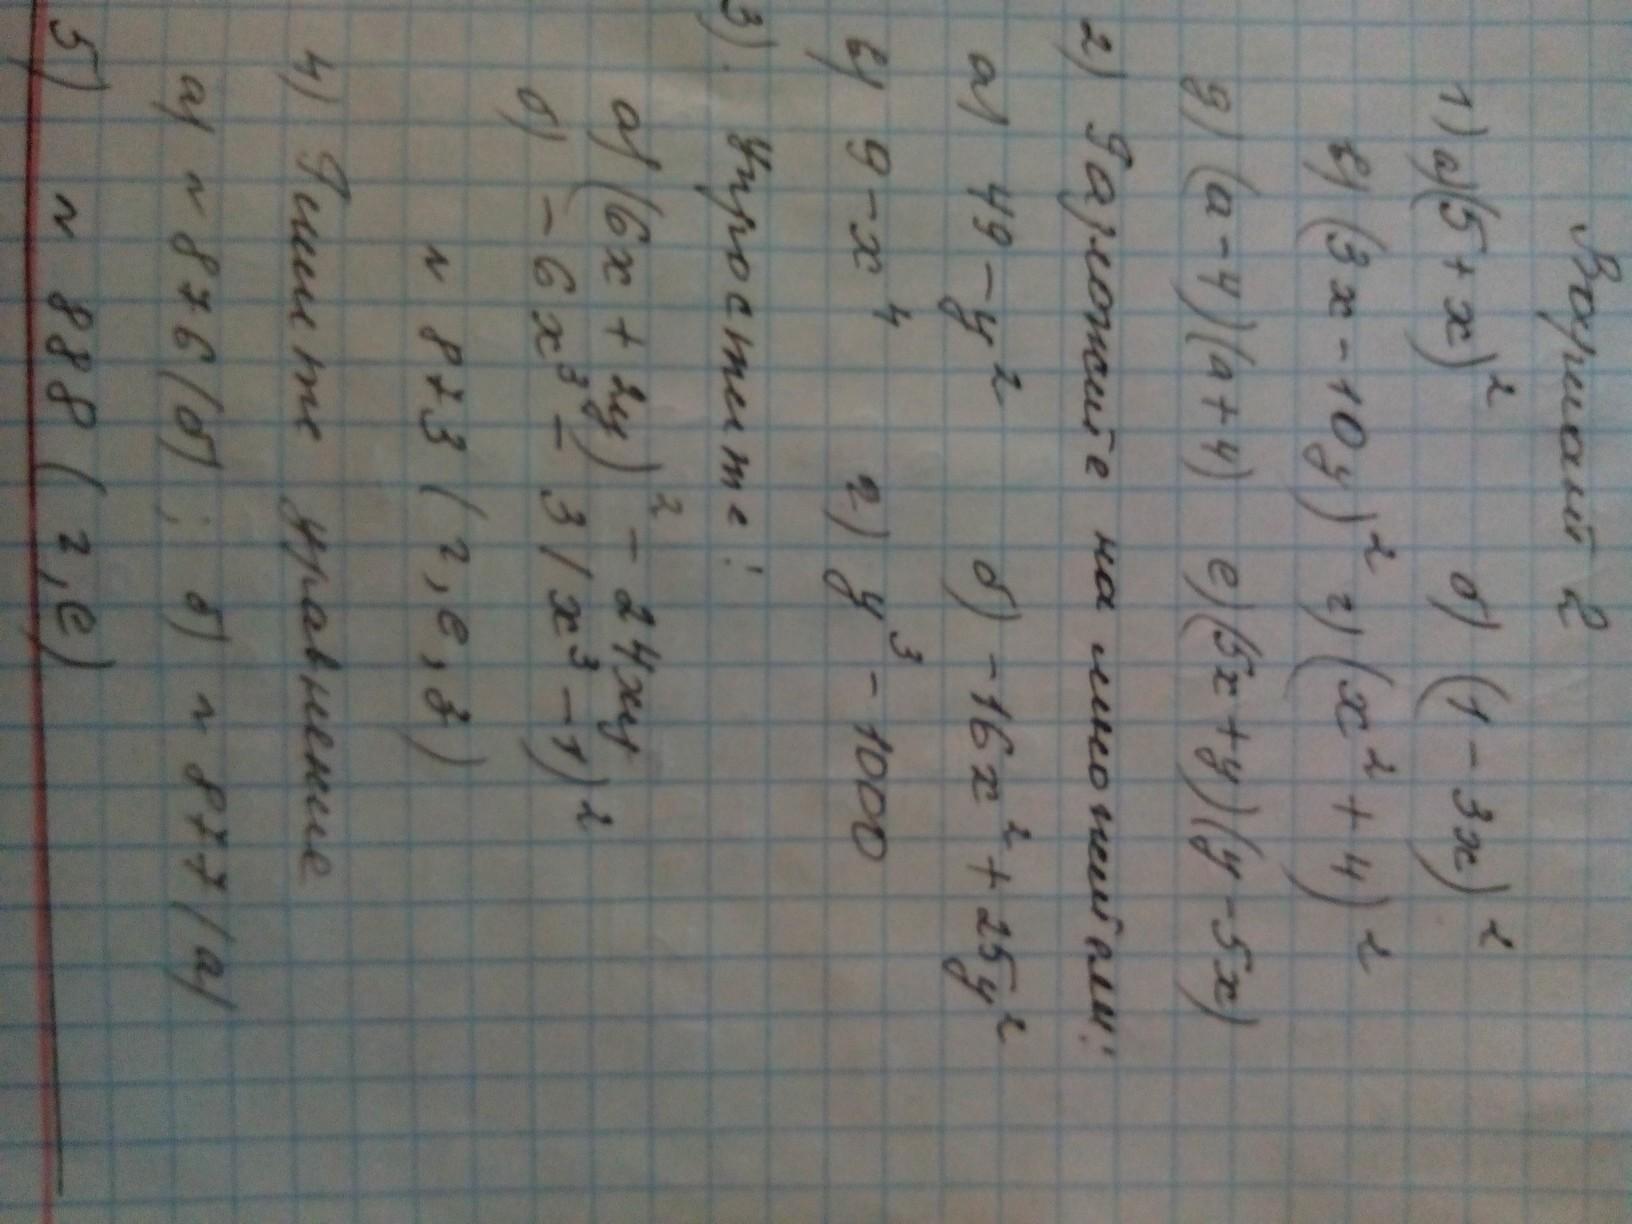 Вариант 2
1) а) (5 + x)² б) (1 - 3x)²
в) (3x - 10y)² г) (x² + 4)²
д) (a - 4)(a + 4) е) (5x + y)(y - 5x)
2) Разложите на множители:
а) 49 - y² б) -16x² + 25y²
в) 9 - x⁴ г) y³ - 1000
3). Упростите:
а) (6x + 2y)² - 24xy
б) - 6x³ - 3(x³ - 1)²
~ 873 (г, е, з)
4) Решите уравнение
а) ~ 876 (б) ; б) ~ 877 (а)
5) ~ 888 (г, е)